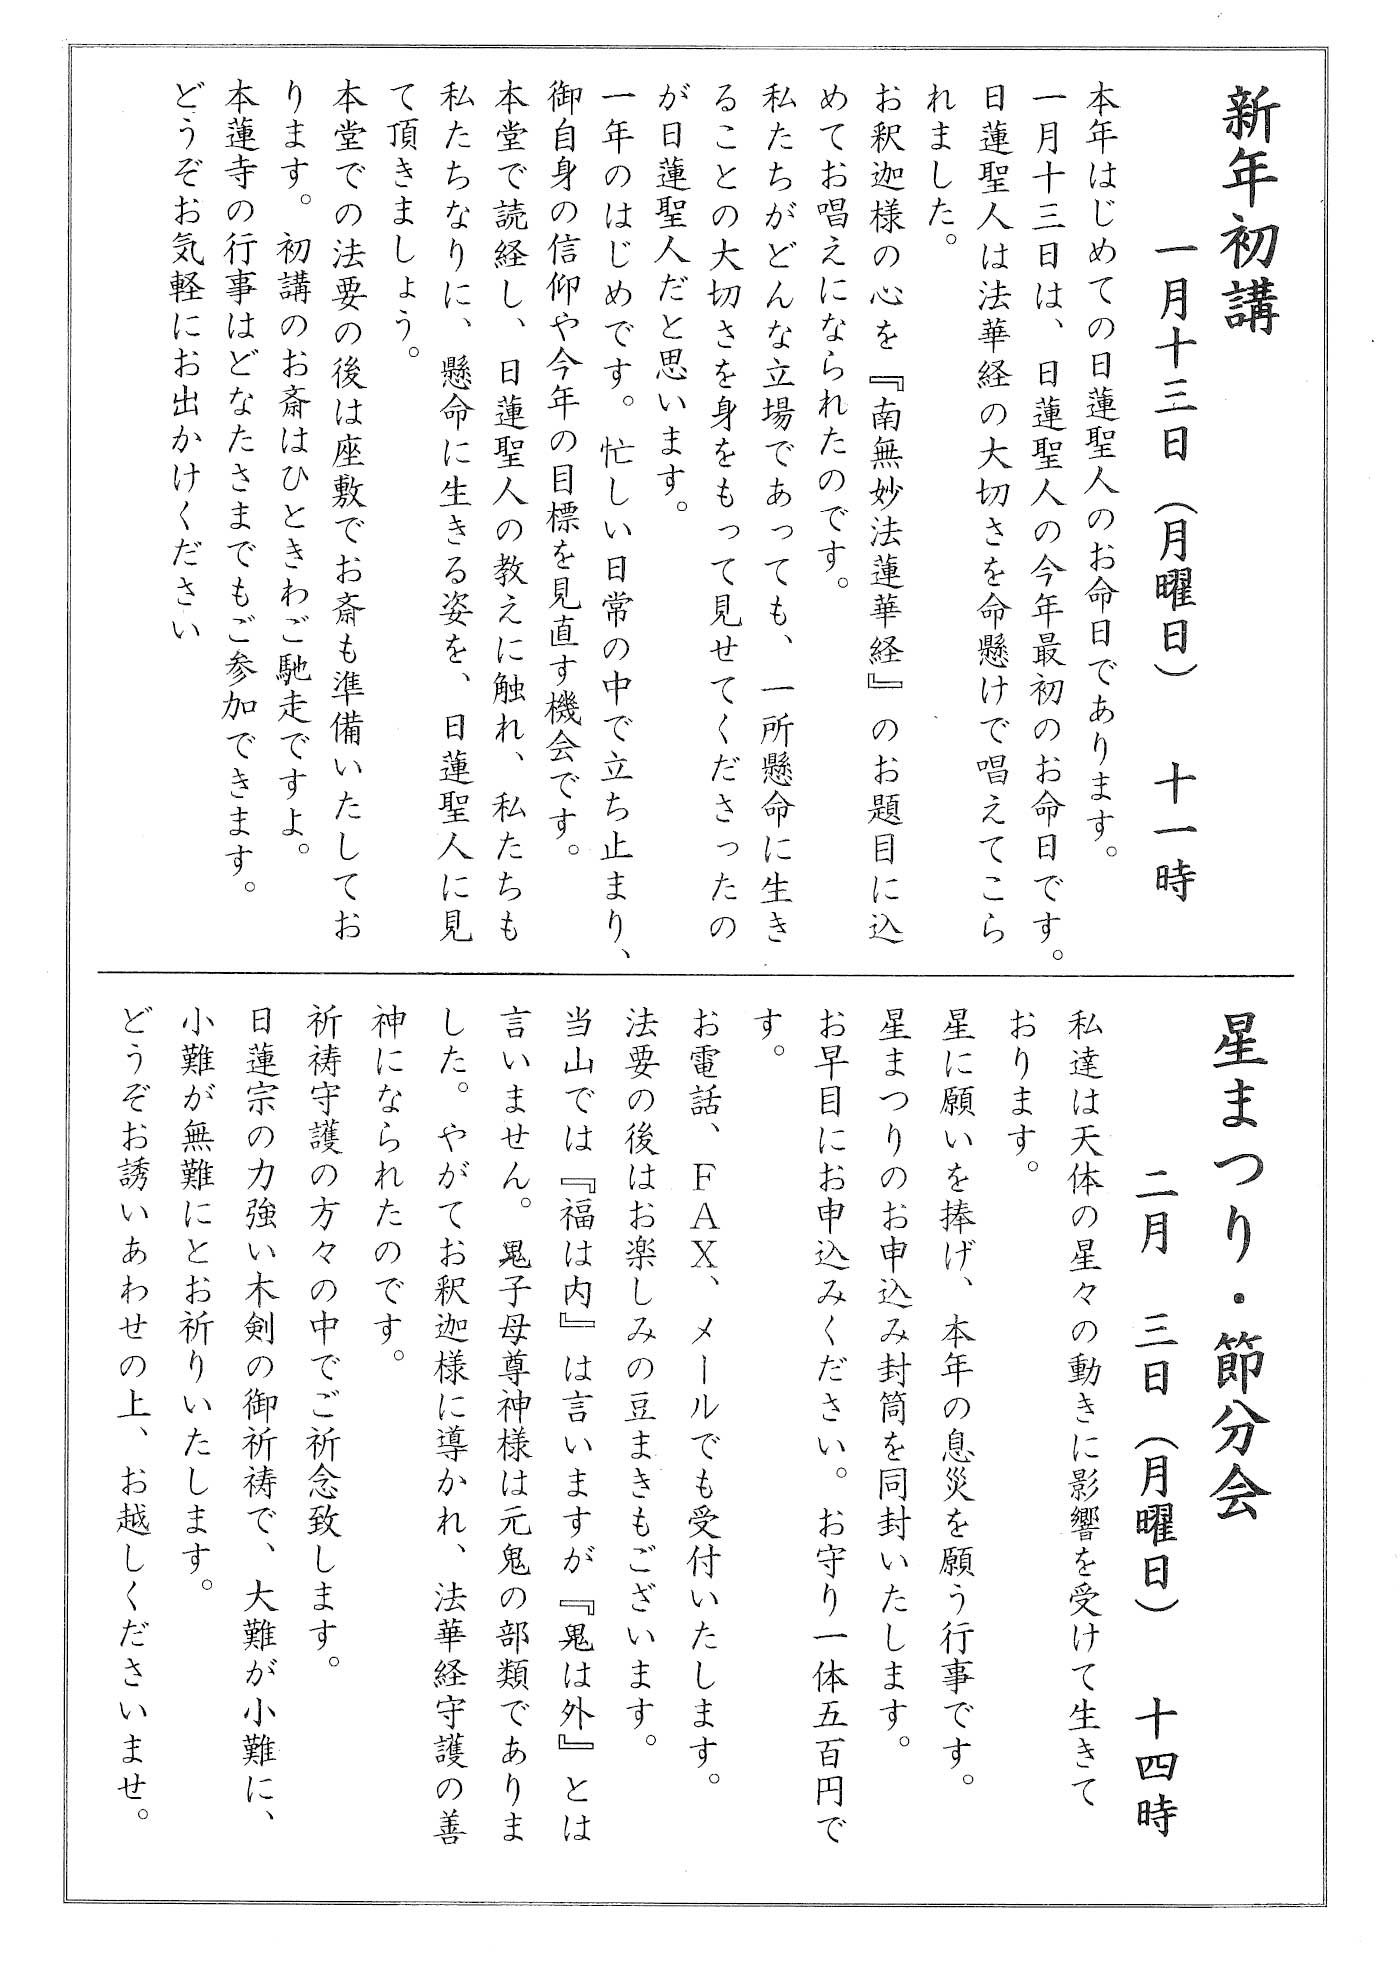 新年初講
一月十三日（月曜日）　十一時
本年はじめての日蓮聖人のお命日であります。
一月十三日は、日蓮聖人の今年最初のお命日です。
日蓮聖人は法華経の大切さを命懸けで唱えてこら
れました。
お釈迦様の心を『南無妙法蓮華経』のお題目に込
めてお唱えになられたのです。
私たちがどんな立場であっても、一所懸命に生き
ることの大切さを身をもって見せてくださったの
が日蓮聖人だと思います。
一年のはじめです。忙しい日常の中で立ち止まり、
御自身の信仰や今年の目標を見直す機会です。
本堂で読経し、日蓮聖人の教えに触れ、私たちも
私たちなりに、懸命に生きる姿を、日蓮聖人に見
て頂きましょう。
本堂での法要の後は座敷でお斎も準備いたしてお
ります。初講のお斎はひときわご馳走ですよ。
本蓮寺の行事はどなたさまでもご参加できます。
どうぞお気軽にお出かけください
星まつり・節分会
二月　三日（月曜日）　十四時
私達は天体の星々の動きに影響を受けて生きて
おります。
星に願いを捧げ、本年の息災を願う行事です。
星まつりのお申込み封筒を同封いたします。
お早目にお申込みください。お守り一体五百円で
す。
お電話、ＦＡＸ、メールでも受付いたします。
法要の後はお楽しみの豆まきもございます。
当山では『福は内』は言いますが『鬼は外』とは
言いません。鬼子母尊神様は元鬼の部類でありま
した。やがてお釈迦様に導かれ、法華経守護の善
神になられたのです。
祈祷守護の方々の中でご祈念致します。
日蓮宗の力強い木剣の御祈祷で、大難が小難に、
小難が無難にとお祈りいたします。
どうぞお誘いあわせの上、お越しくださいませ。